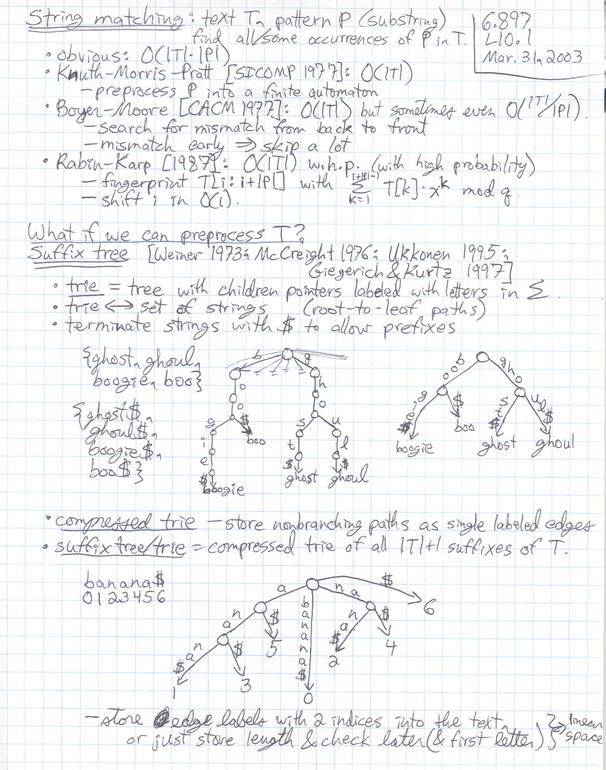 String matching: text T, pattern P (substring)
find all/some occurrences of P in T.
6.897
L10.1
Mar. 31, 2003
• obvious: O(|T|·|P|)
• Knuth-Morris-Pratt [SICOMP 1977]: O(|T|)
– preprocess P into a finite automaton
• Boyer-Moore [CACM 1977]: O(|T|) but sometimes even O(|T|/|P|).
– search for mismatch from back to front
– mismatch early ⇒ skip a lot
• Rabin-Karp [1987]: O(|T|) w.h.p. (with high probability)
– fingerprint T[i:i+|P|] with Σ_{k=i}^{i+|P|-1} T[k]·x^k mod q
– shift i in O(1).
What if we can preprocess T?
Suffix tree [Weiner 1973; McCreight 1976; Ukkonen 1995;
Giegerich & Kurtz 1997]
• trie = tree with children pointers labeled with letters in Σ
• trie ↔ set of strings (root-to-leaf paths)
• terminate strings with $ to allow prefixes
{ghost, ghoul,
boogie, boo}
{ghost$,
ghoul$,
boogie$,
boo$}
b g
o h
o o
g $ s u
i boo t l
e $ $
$ ghost ghoul
boogie
boo gho
gie$ $ st$ ul$
boogie boo ghost ghoul
• compressed trie – store nonbranching paths as single labeled edges
• suffix tree/trie = compressed trie of all |T|+1 suffixes of T.
banana$
0123456
a banana$ na $
na $ na$ $ 6
na$ $ 5 2 4
1 3 0
– store edge labels with 2 indices into the text,
or just store length & check later (& first letter)
} ⇒ linear
space